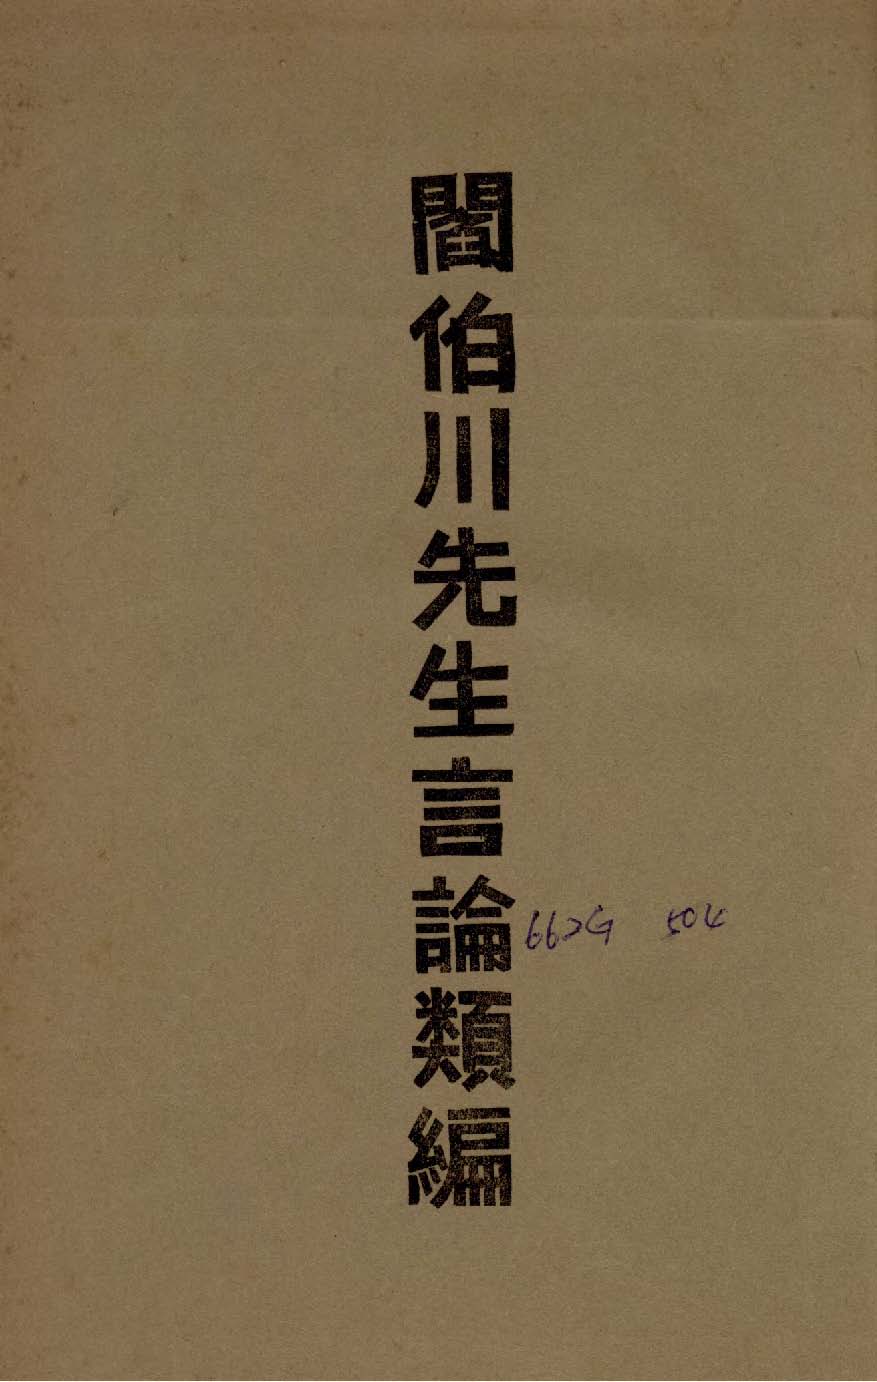 閻伯川先生言論類編
504